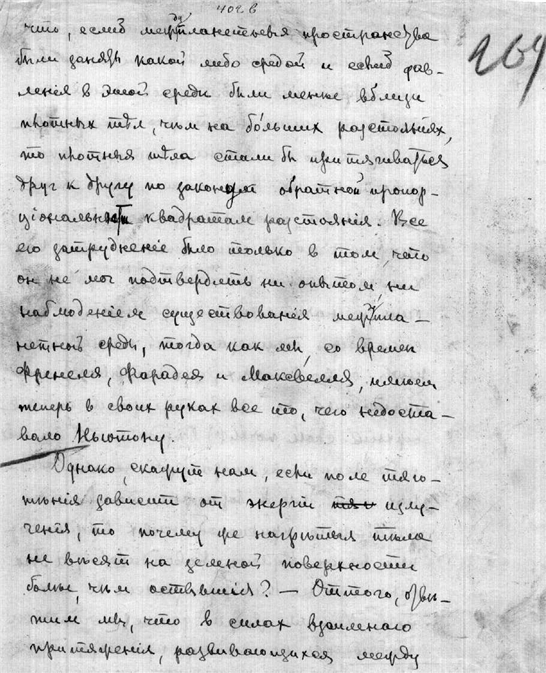 что, еслиб междупланетныя пространства
были заняты какой либо средой и еслиб дав-
ленія в этой среде были менше вблизи
плотных тѣл, чѣм на бо́льших разстояніях,
то плотныя тѣла стали бы притягиваться
друг к другу по законам обратной пропор-
ціональности квадратам разстоянія. Все
его затрудненіе было только в том, что
он не мог подтвердить ни опытом, ни
наблюденіем существованія междупла-
нетной среды, тогда как мы, со времен
Френеля, Фарадея и Максвелля, имѣем
теперь в своих руках все то, чего недоста-
вало Ньютону.
Однако, скажут нам, если поле тяго-
тѣнія зависит от энергіи излу-
ченія, то почему же нагрѣтыя тѣла
не вѣсят на земной поверхности
болѣе, чѣм остывшія? — Оттого, отвѣ-
тим мы, что в силах взаимнаго
притяженія, развивающихся между